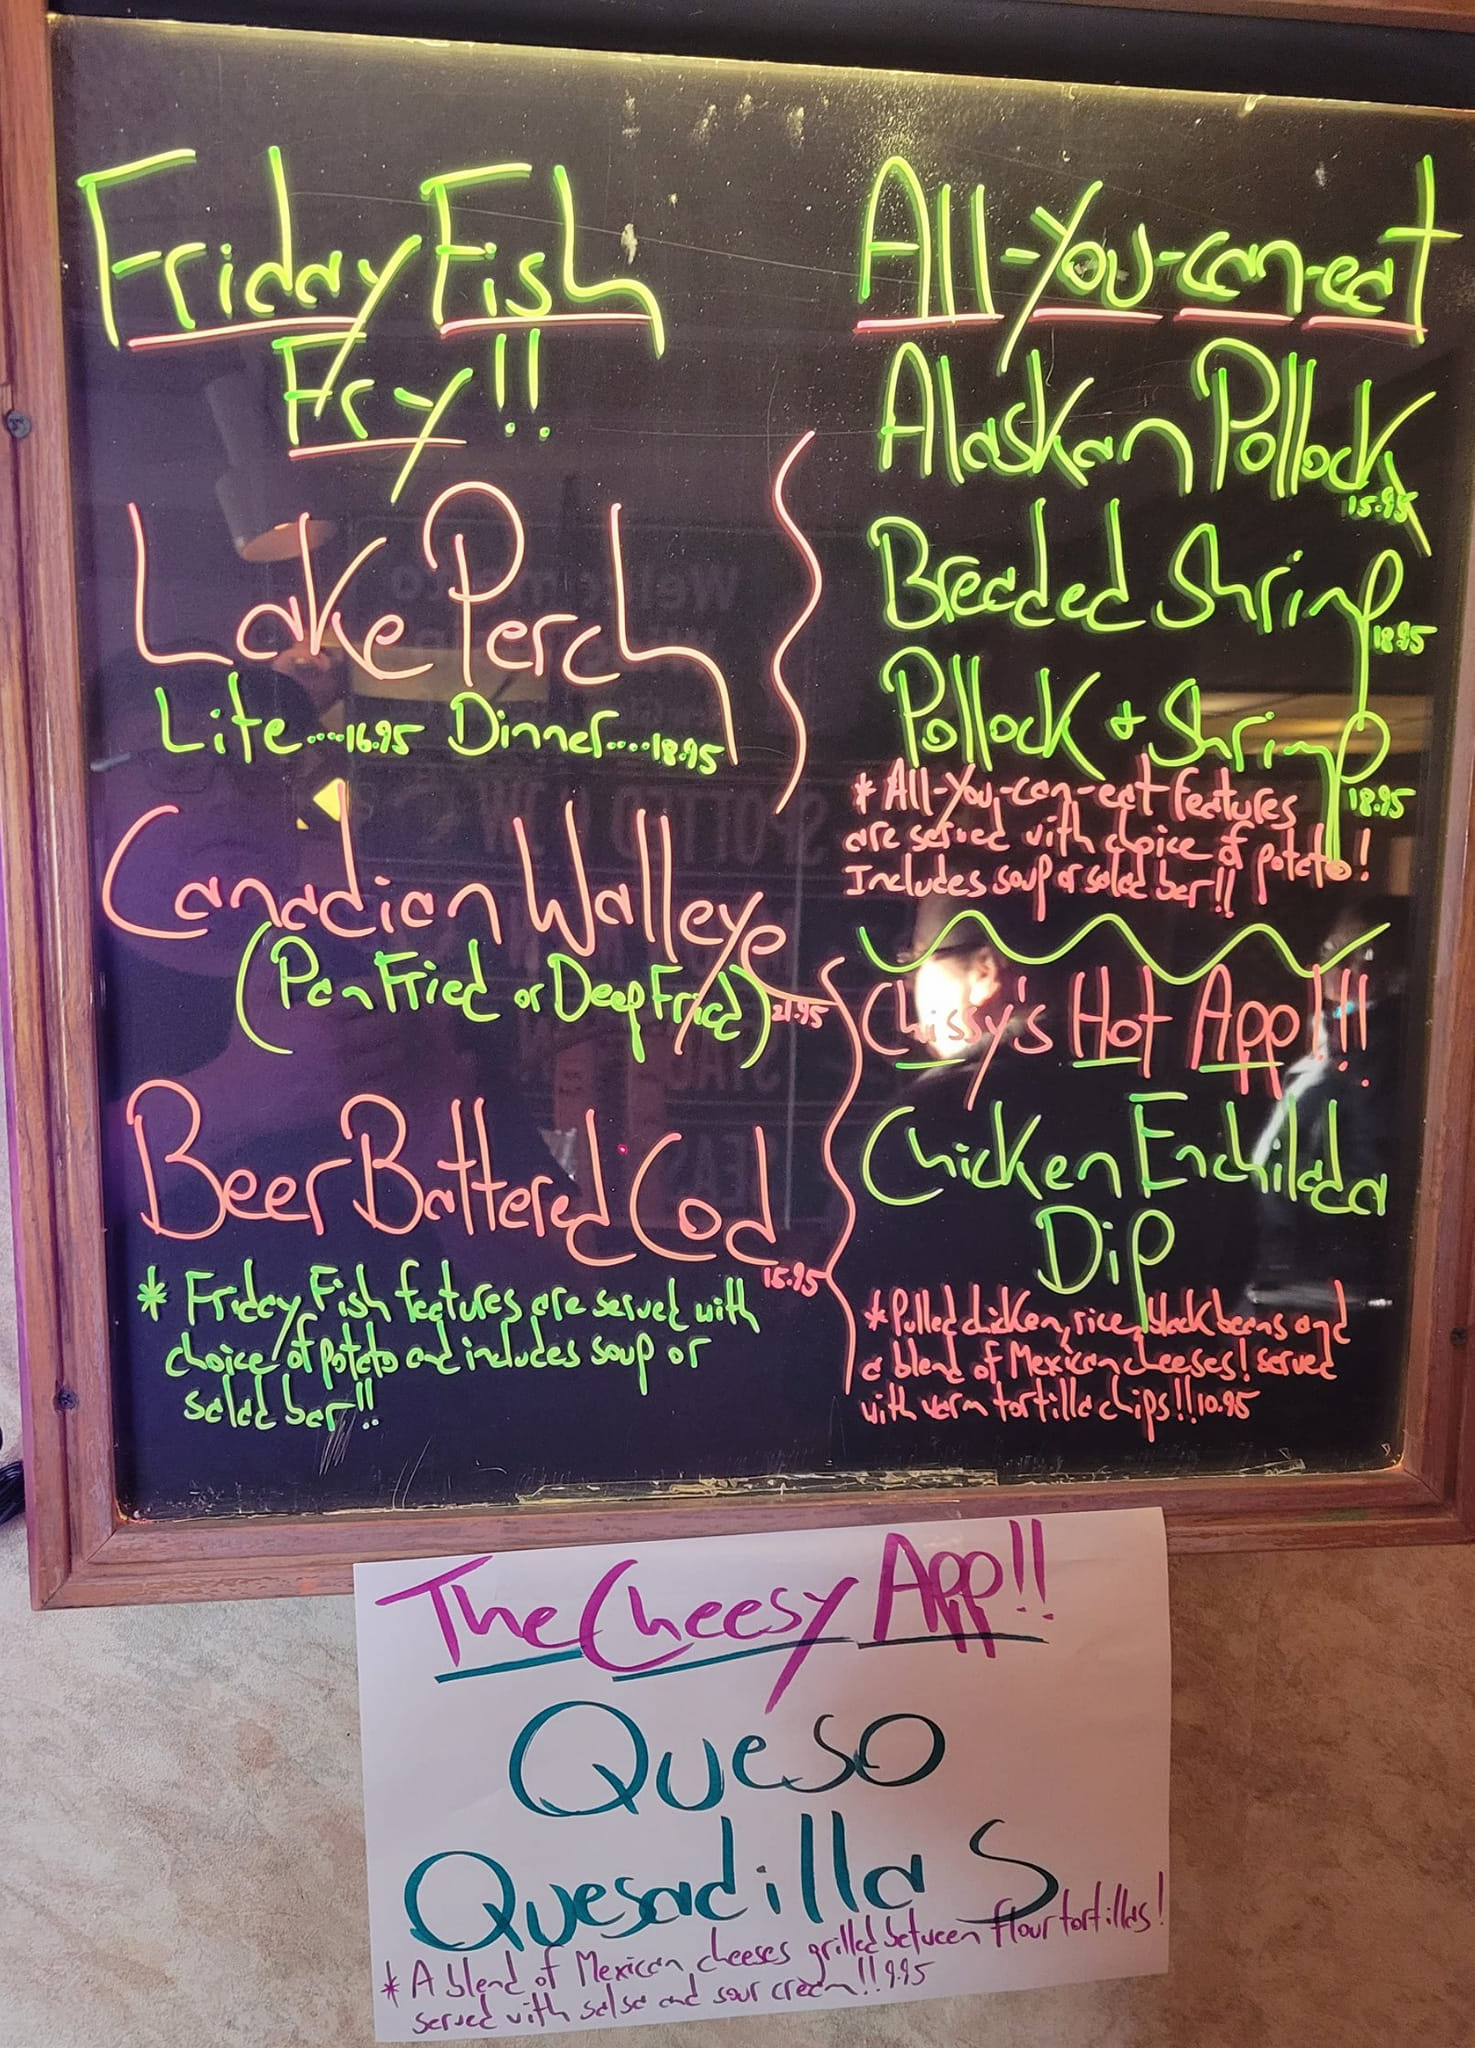 Friday Fish
Fry!!
Lake Perch
Lite....16.95 Dinner....18.95
Canadian Walleye
(Pan Fried or Deep Fried) 21.95
Beer Battered Cod
15.95
* Friday Fish features are served with
choice of potato and includes soup or
salad bar!!
All-you-can-eat
Alaskan Pollock
15.95
Breaded Shrimp
18.95
Pollock + Shrimp
18.95
* All-you-can-eat features
are served with choice of potato!
Includes soup or salad bar!!
Chissy's Hot App!!!
Chicken Enchilada
Dip
* Pulled chicken, rice, black beans and
a blend of Mexican cheeses! served
with warm tortilla chips!! 10.95
The Cheesy App!!
Queso
Quesadillas
* A blend of Mexican cheeses grilled between flour tortillas!
served with salsa and sour cream!! 9.95